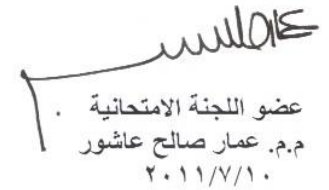 عضو اللجنة الامتحانية
م.م. عمار صالح عاشور
٢٠١١/٧/١٠